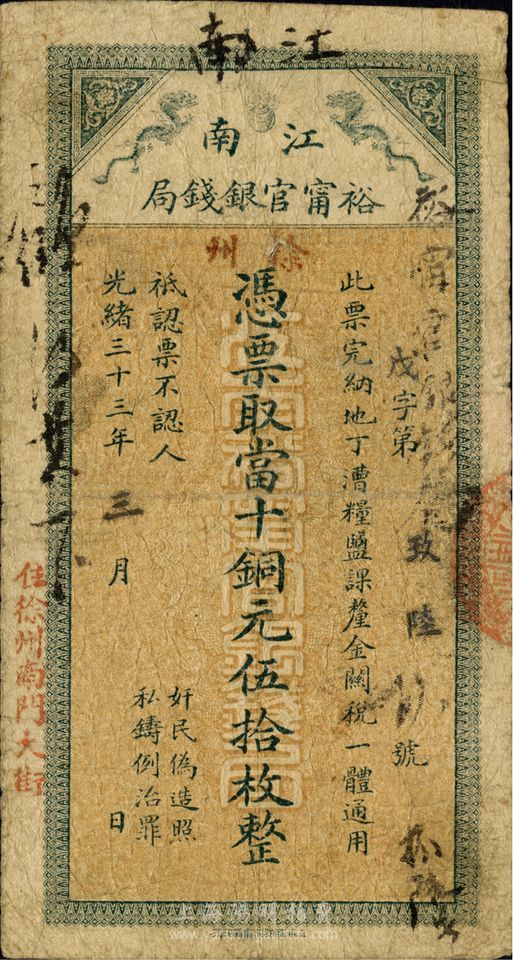 江南
江南
裕甯官銀錢局
徐州
戊字第 玖陸 號
此票完納地丁漕糧鹽課釐金關稅一體通用
憑票取當十銅元伍拾枚整
祇認票不認人
光緒三十三年三月 日
奸民偽造照
私鑄例治罪
住徐州南門大街
裕甯官銀錢